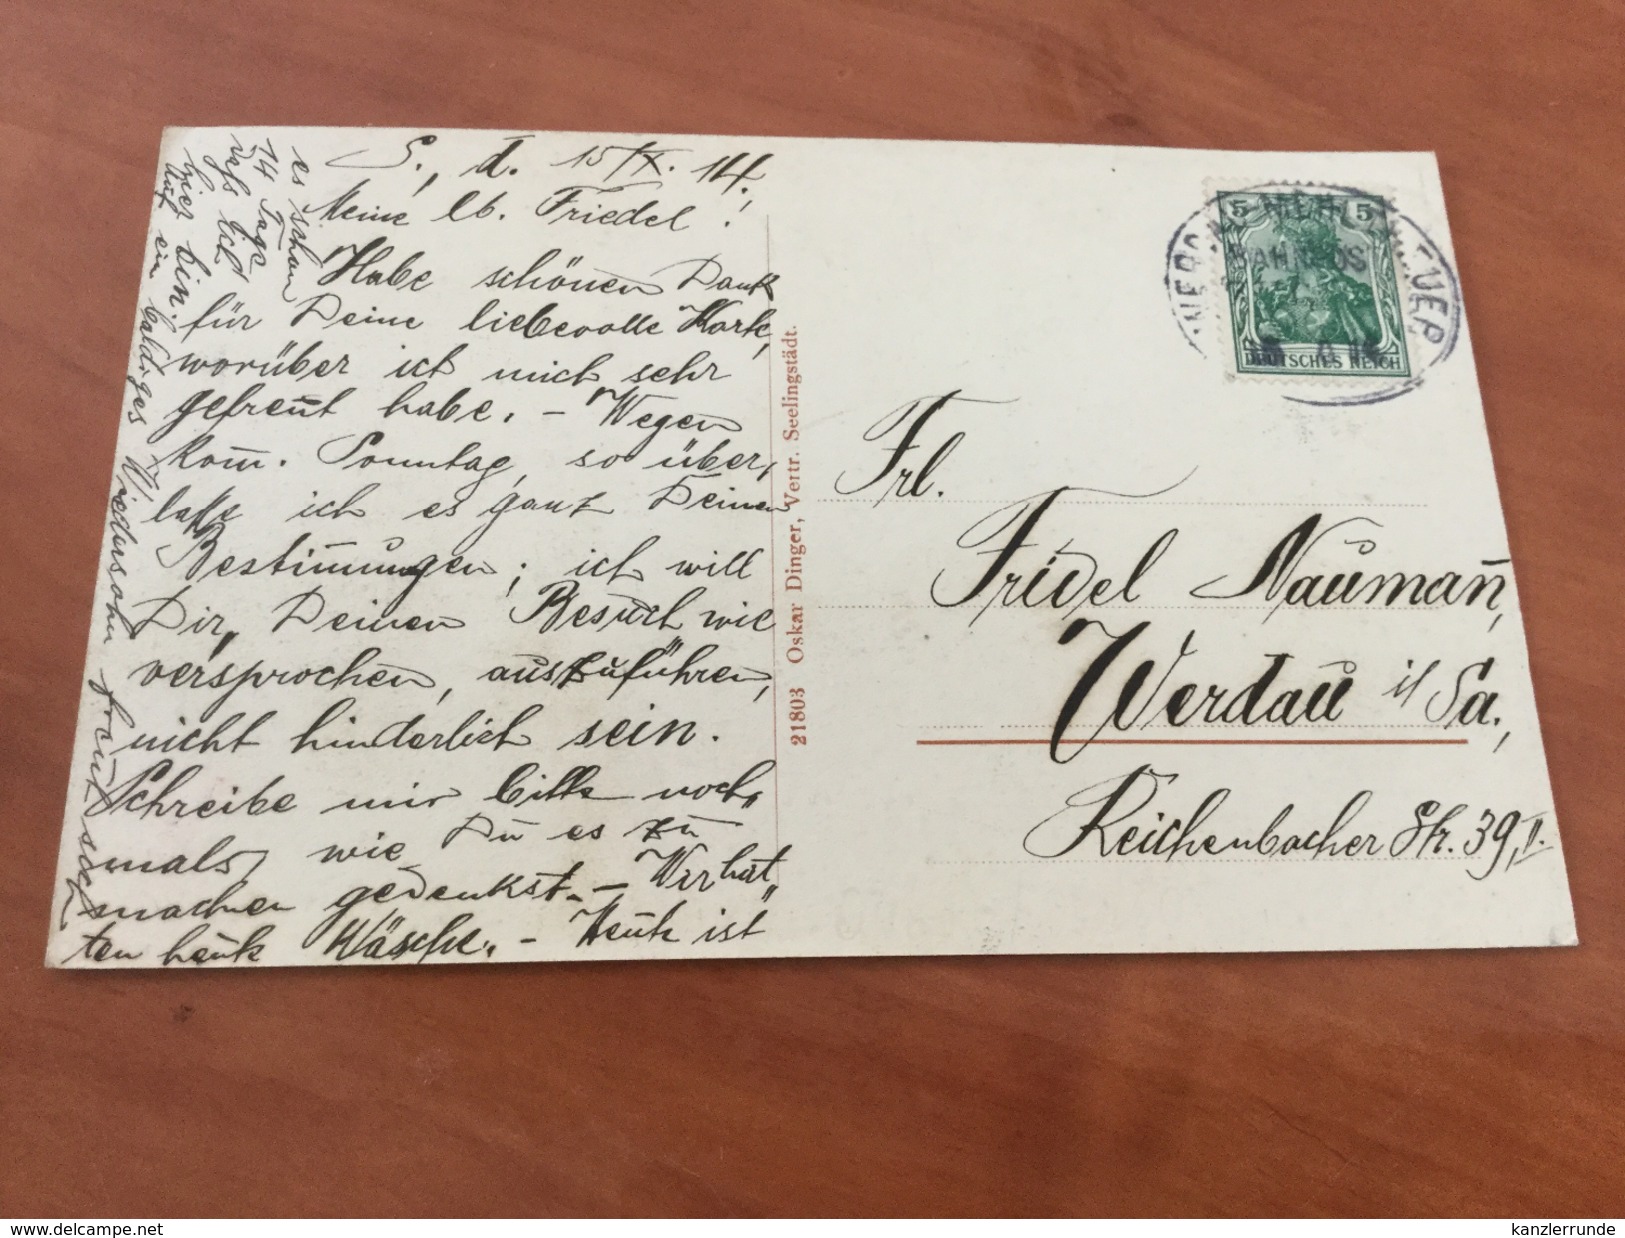 S., d. 15/X. 14.
Meine lb. Friedel!
Habe schönen Dank
für Deine liebevolle Karte,
worüber ich mich sehr
gefreut habe. – Wegen
kom̄. Sonntag, so über„
lasse ich es ganz Deinen
Bestim̄ungen; ich will
Dir, Deinen Besuch wie
versprochen, auszuführen,
nicht hinderlich sein.
Schreibe mir bitte noch„
mals, wie Du es zu
machen gedenkst. – Wir hat„
ten heute Wäsche. – Heute ist
es schon
14 Tage
daß ich
hier bin.
Auf ein baldiges Wiedersehn freut sich
21803 Oskar Dinger, Vertr. Seelingstädt.
5 5
DEUTSCHES REICH
Frl.
Friedel Nauman̄,
Werdau i/ Sa.,
Reichenbacher Str. 39, II.
www.delcampe.net
kanzlerrunde